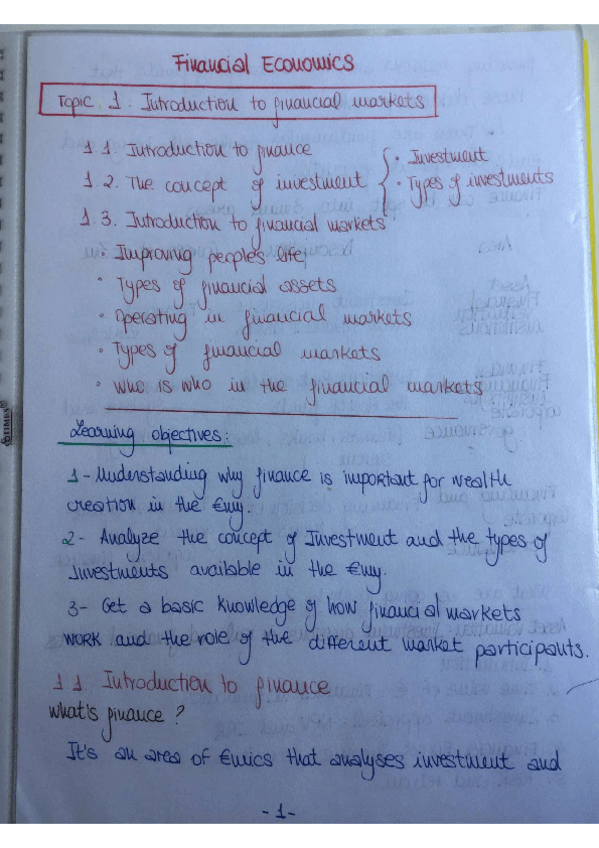 Financial Economics
Topic 1: Introduction to financial markets
1.1. Introduction to finance
1.2. The concept of investment { · Investment
· Types of investments
1.3. Introduction to financial markets
· Improving people's life
· Types of financial assets
· Operating in financial markets
· Types of financial markets
· Who is who in the financial markets
Learning objectives:
1- Understanding why finance is important for wealth
creation in the €my.
2- Analyze the concept of Investment and the types of
investments available in the €my.
3- Get a basic knowledge of how financial markets
work and the role of the different market participants.
1.1. Introduction to finance
What's finance?
It's an area of €mics that analyses investment and
-1-